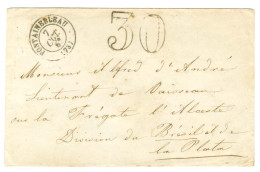 FONTAINEBLEAU
30
Monsieur Alfred d'André
Lieutenant de Vaisseau
sur la Frégate l'Alceste
Division du Brésil et de
la Plata